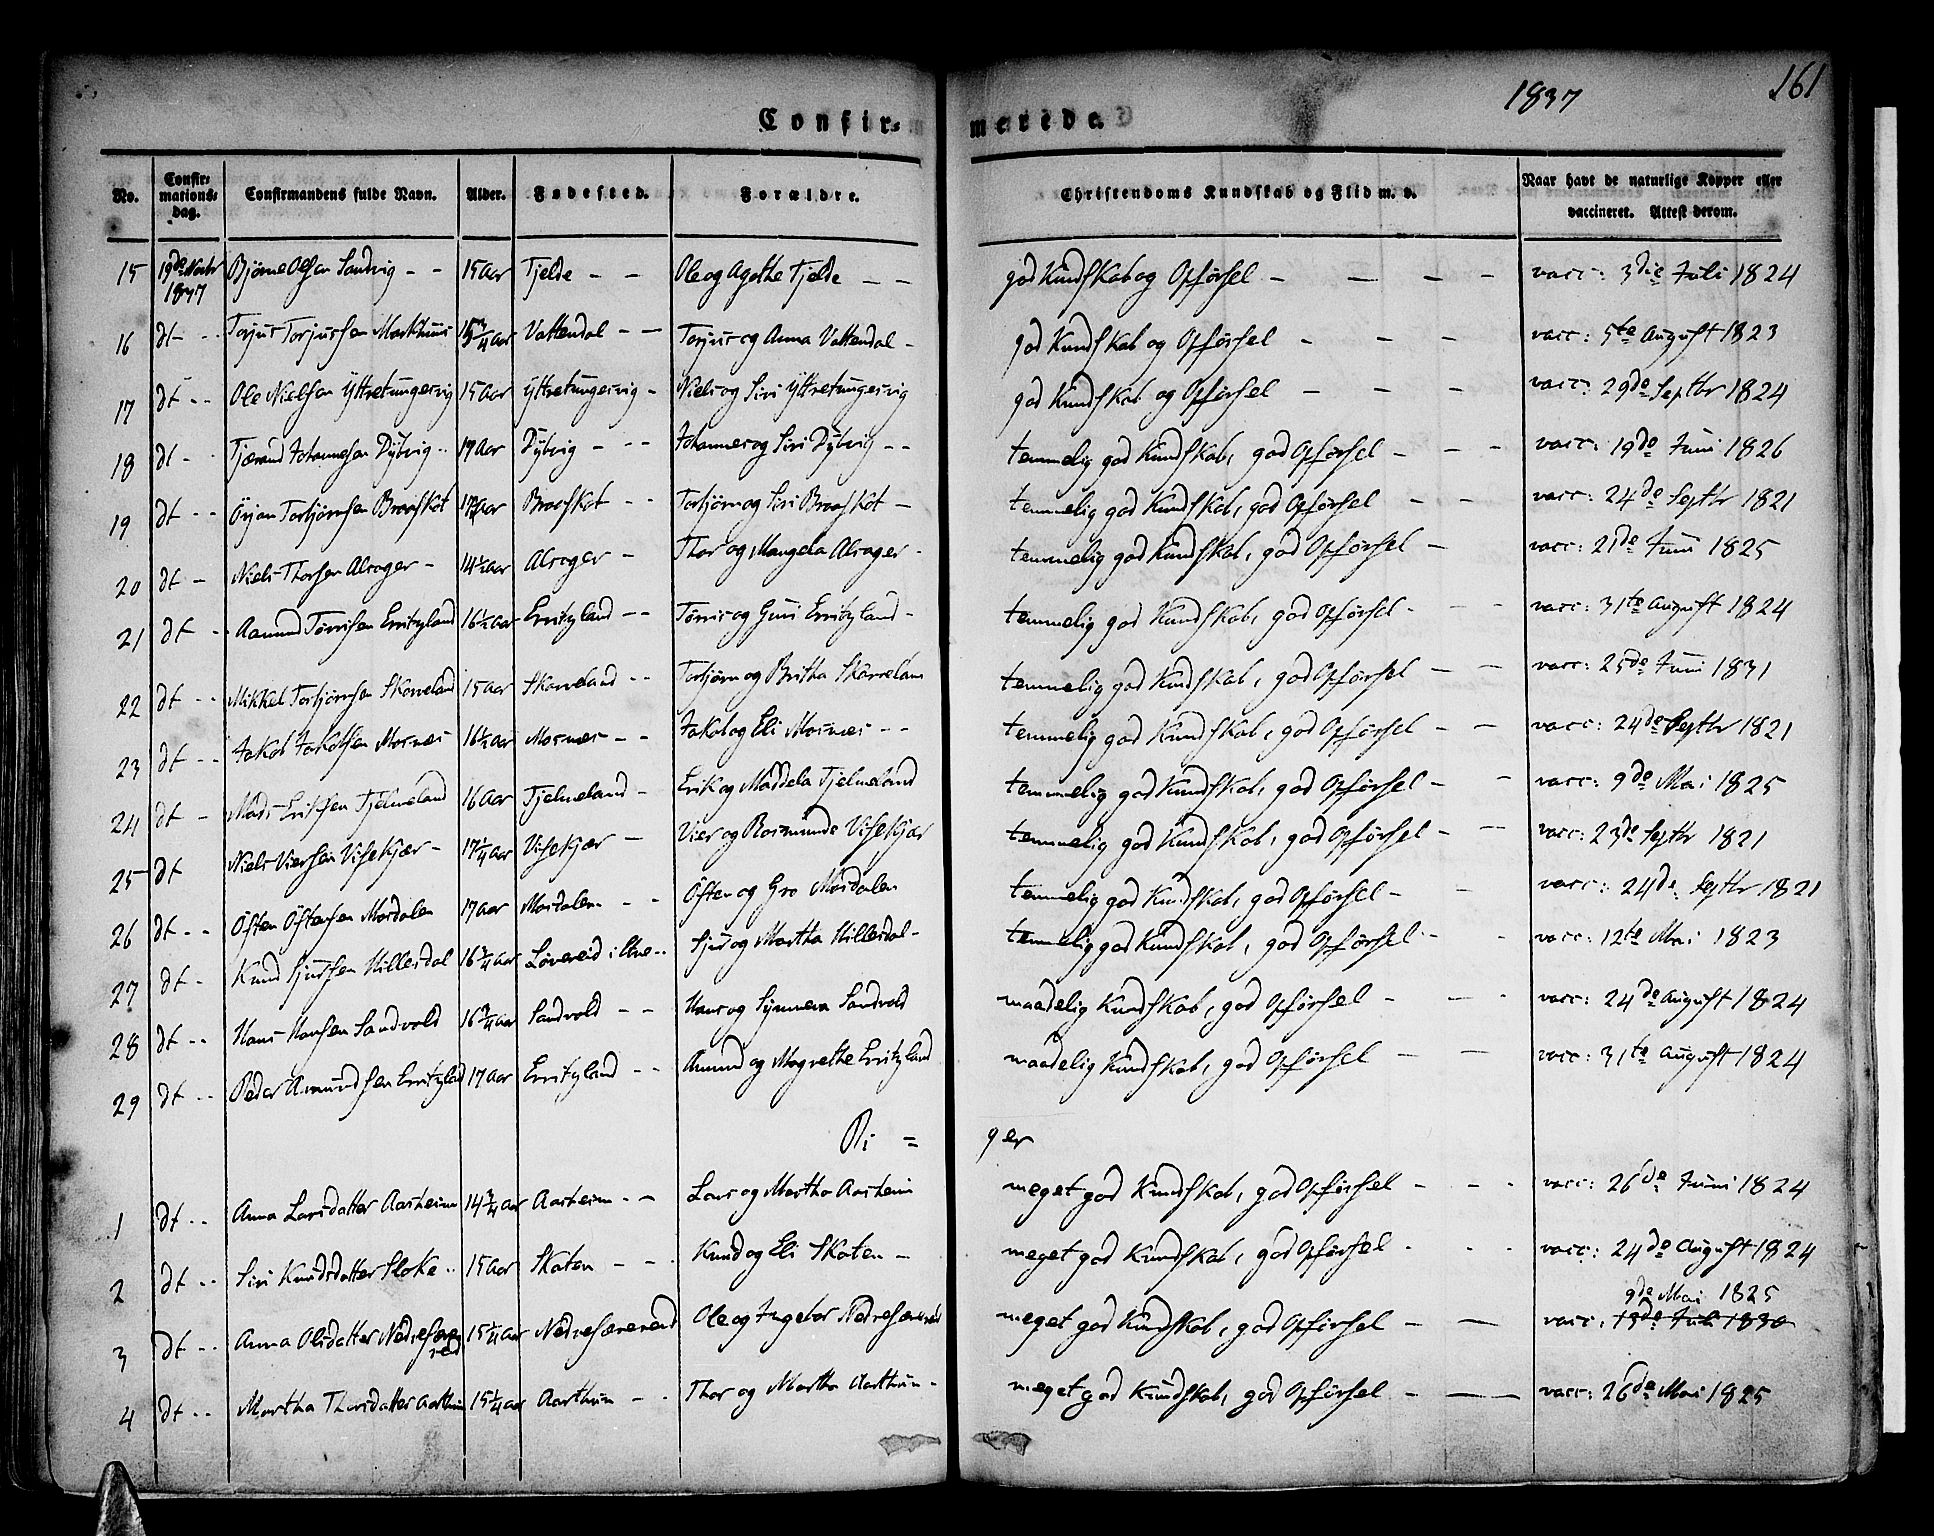 1837
161
Confir-
merede.
No. Confir-mations-dag. Confirmandens fulde Navn. Alder. Fødested. Forældre. Christendoms Kundskab og Flid m. v. Naar havt de naturlige Kopper eller vaccineret. Attest derom.
15 19de Novbr 1837 Bjørne Olsen Sandvig - - 15 Aar Tjelde - - Ole og Agathe Tjelde - - god Kundskab og Opførsel - - - - vacc: 3die Juli 1824
16 dt - - Torjus Torjussen Markhuus 15 3/4 Aar Vattendal - - Torjus og Anna Vattendal - god Kundskab og Opførsel - - - vacc: 5te August 1823
17 dt - - Ole Nielsen Yttretungesvig 15 Aar Yttretungesvig - Niels og Siri Yttretungesvig god Kundskab og Opførsel - - - vacc: 29de Septbr 1824
18 dt - - Tjærand Johannesen Dybvig - - 17 Aar Dybvig - - - Johannes og Siri Dybvig - - temmelig god Kundskab, god Opførsel - - - vacc: 19de Juni 1826
19 dt - - Örjan Torbjørnsen Braaskat Aar Braaskat - - Torbjørn og Siri Braaskat - temmelig god Kundskab, god Opførsel - - vacc: 24de Septbr 1821
20 dt - Niels Thorsen Alsager - 14 1/2 Aar Alsager - Thor og Mangela Alsager - temmelig god Kundskab, god Opførsel - vacc: 21de Juni 1825
21 dt - - Aamund Tørrisen Erritzland 16 1/2 Aar Erritzland - - Tørris og Guri Erritzland - temmelig god Kundskab, god Opførsel - - - vacc: 31te August 1824
22 dt - - Mikkel Torbjørnsen Skarveland 15 Aar Skarveland - - Torbjørn og Britha Skarveland temmelig god Kundskab, god Opførsel - - vacc: 25de Juni 1831
23 dt - - Jakob Jakobsen Mosnæs 16 1/2 Aar Mosnæs - - Jakob og Eli Mosnæs - - temmelig god Kundskab, god Opførsel - - vacc: 24de Septbr 1821
24 dt - Mads Eriksen Tjelmeland 16 Aar Tjelmeland - Erik og Maddela Tjelmeland temmelig god Kundskab, god Opførsel - - vacc: 9de Mai 1825
25 dt Niels Viersen Viskjær - 17 1/4 Aar Viskjær - Vier og Rosmunde Viskjær temmelig god Kundskab, god Opførsel - - vacc: 23de Septbr 1821
26 dt - - Östen Östensen Mosdalen 17 Aar Mosdalen - - Östen og Gro Mosdalen temmelig god Kundskab, god Opførsel - - vacc: 24de Septbr 1821
27 dt - Knud Sjursen Hillesdal 16 3/4 Aar Løvereid i Etne - - Sjur og Martha Hillesdal - temmelig god Kundskab, god Opførsel - - vacc: 12te Mai 1823
28 dt - - Hans Hansen Sandvold 16 3/4 Aar Sandvold - - Hans og Synneva Sandvold maadelig Kundskab, god Opførsel - - - vacc: 24de August 1824
29 dt - - Peder Amundsen Erritzland 17 Aar Erritzland - - Amund og Magrethe Erritzland maadelig Kundskab, god Opførsel - - vacc: 31te August 1824
Pi =
ger
1 dt - - Anna Larsdatter Aarheim 14 3/4 Aar Aarheim - - Lars og Martha Aarheim meget god Kundskab, god Opførsel - - - vacc: 26de Juni 1824
2 dt - - Siri Knudsdatter Sloke - - 15 Aar Skaten - - - Knud og Eli Skaten - meget god Kundskab, god Opførsel - - - vacc: 24de August 1824
3 dt - - Anna Olsdatter Nedresævereid 15 1/4 Aar Nedresævereid Ole og Ingebor Nedresævereid meget god Kundskab, god Opførsel - - vacc: 13de Juli 1830 9de Mai 1825
4 dt - - Martha Thorsdatter Aarthun 15 1/4 Aar Aarthun - - Thor og Martha Aarthun - meget god Kundskab, god Opførsel - - - vacc: 26de Mai 1825